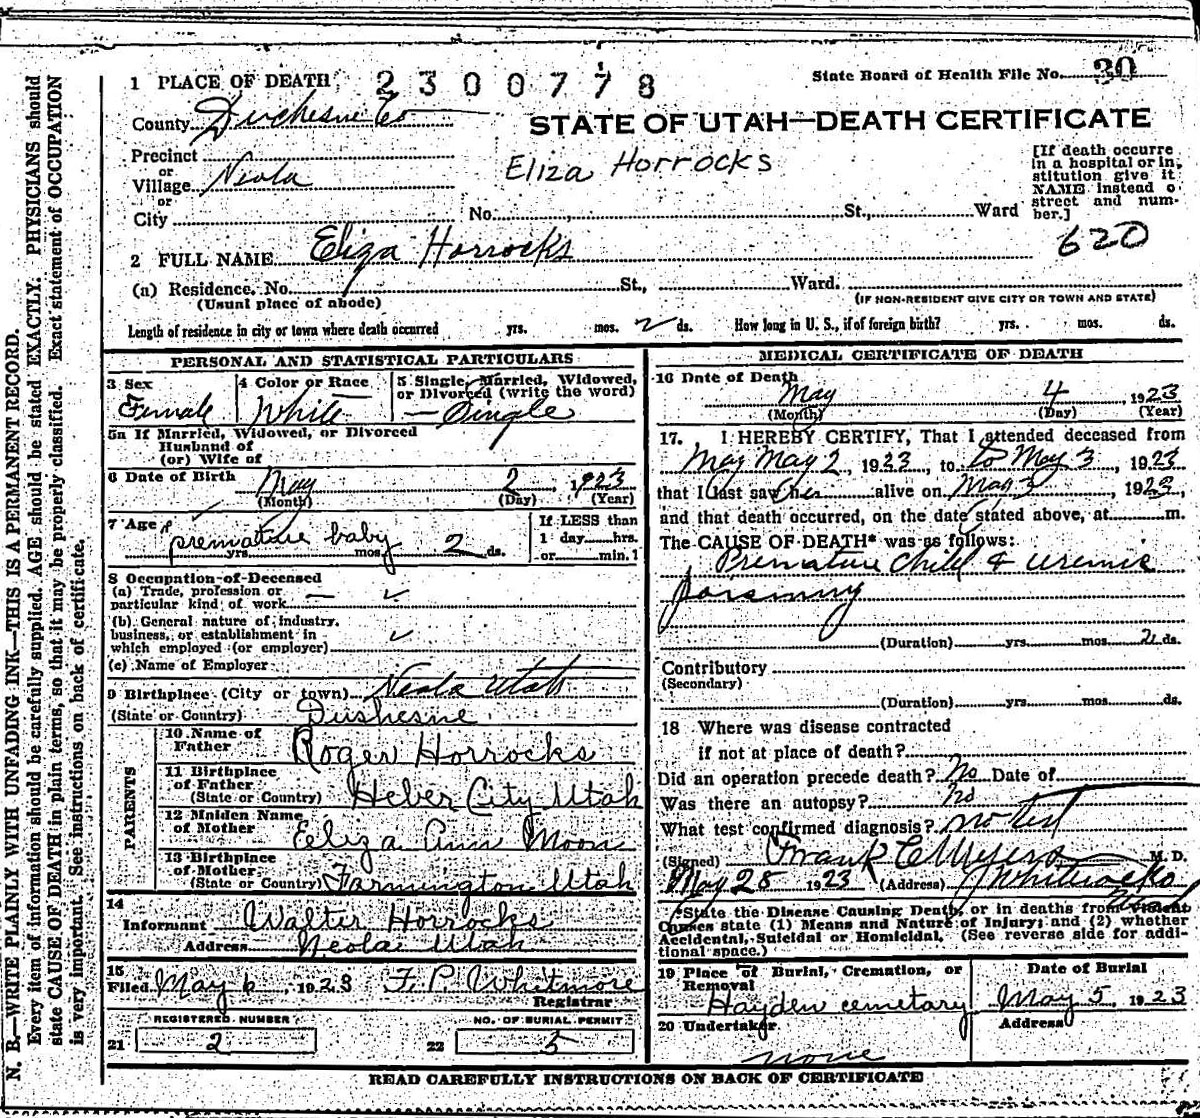 1 PLACE OF DEATH 2300778
State Board of Health File No. 30
County Duchesne Co
STATE OF UTAH—DEATH CERTIFICATE
Precinct
or
Village Neola
or
City
No. St., Ward
Eliza Horrocks
[If death occurre
in a hospital or in-
stitution give it
NAME instead o
street and num-
ber.]
620
2 FULL NAME Eliza Horrocks
(a) Residence. No. St., Ward.
(Usual place of abode)
(IF NON-RESIDENT GIVE CITY OR TOWN AND STATE)
Length of residence in city or town where death occurred yrs. mos. 2 ds. How long in U. S., if of foreign birth? yrs. mos. ds.
PERSONAL AND STATISTICAL PARTICULARS
3 Sex
Female
4 Color or Race
White
5 Single, Married, Widowed,
or Divorced (write the word)
— Single
5a If Married, Widowed, or Divorced
Husband of
(or) Wife of
6 Date of Birth May 2, 1923
(Month) (Day) (Year)
7 Age
premature baby 2 ds.
yrs. mos.
If LESS than
1 day hrs.
or min.
8 Occupation of Deceased
(a) Trade, profession or
particular kind of work
(b) General nature of industry,
business, or establishment in
which employed (or employer)
(c) Name of Employer
9 Birthplace (City or town) Neola Utah
(State or Country) Dushesne
PARENTS
10 Name of
Father Roger Horrocks
11 Birthplace
of Father
(State or Country) Heber City Utah
12 Maiden Name
of Mother Eeliza Ann Moon
13 Birthplace
of Mother
(State or Country) Farmington Utah
14
Informant Walter Horrocks
Address Neola Utah
15
Filed May 6, 1923 F. P. Whitmore
Registrar
REGISTERED NUMBER
21 2
NO. OF BURIAL PERMIT
22 5
MEDICAL CERTIFICATE OF DEATH
16 Date of Death
May 4, 1923
(Month) (Day) (Year)
17. I HEREBY CERTIFY, That I attended deceased from
May May 2, 1923, to to May 3, 1923
that I last saw her alive on May 3, 1923,
and that death occurred, on the date stated above, at m.
The CAUSE OF DEATH* was as follows:
Premature Child & uremic
(Duration) yrs. mos. 2 ds.
Contributory
(Secondary)
(Duration) yrs. mos. ds.
18 Where was disease contracted
if not at place of death?
Did an operation precede death? No Date of
Was there an autopsy? no
What test confirmed diagnosis? no test
(Signed) Frank C Myers M. D.
May 28 1923 (Address) Whiterocks
*State the Disease Causing Death, or in deaths from Violent
Causes state (1) Means and Nature of Injury; and (2) whether
Accidental, Suicidal or Homicidal. (See reverse side for addi-
tional space.)
19 Place of Burial, Cremation, or
Removal
Hayden cemetary
Date of Burial
May 5, 1923
20 Undertaker
none
Address
READ CAREFULLY INSTRUCTIONS ON BACK OF CERTIFICATE
N. B.—WRITE PLAINLY WITH UNFADING INK—THIS IS A PERMANENT RECORD.
Every item of information should be carefully supplied. AGE should be stated EXACTLY. PHYSICIANS should
state CAUSE OF DEATH in plain terms, so that it may be properly classified. Exact statement of OCCUPATION
is very important. See instructions on back of certificate.